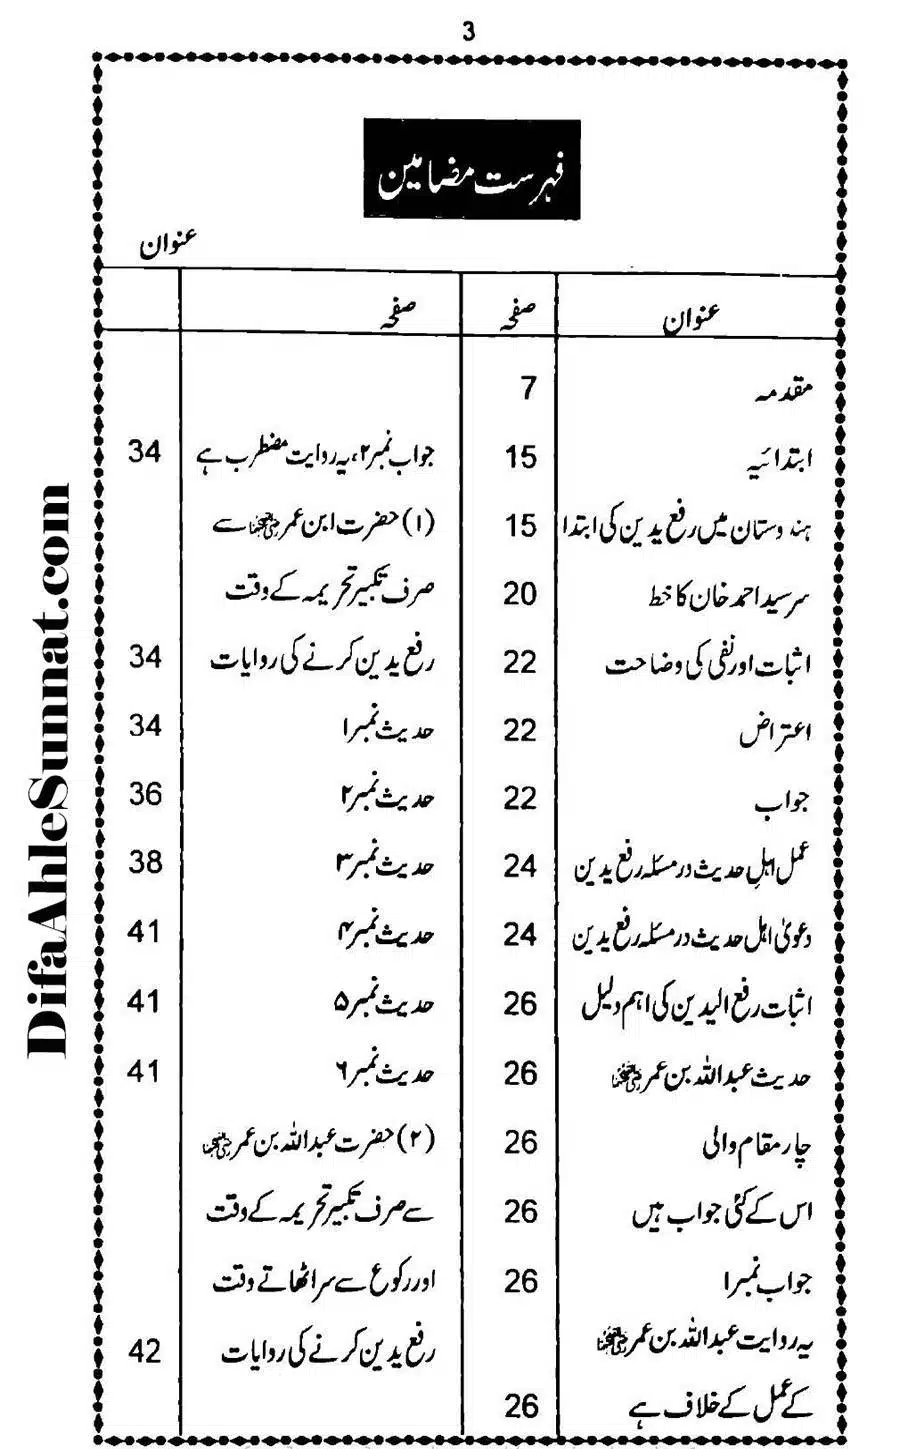 3
فہرست مضامین
عنوان
عنوان صفحہ
صفحہ
مقدمہ 7
ابتدائیہ 15
ہندوستان میں رفع یدین کی ابتدا 15
سرسید احمد خان کا خط 20
اثبات اور نفی کی وضاحت 22
اعتراض 22
جواب 22
عمل اہلِ حدیث در مسئلہ رفع یدین 24
دعویٰ اہل حدیث در مسئلہ رفع یدین 24
اثبات رفع الیدین کی اہم دلیل 26
حدیث عبداللہ بن عمر رضی اللہ عنہما 26
چار مقام والی 26
اس کے کئی جواب ہیں 26
جواب نمبر۱ 26
یہ روایت عبداللہ بن عمر رضی اللہ عنہما
کے عمل کے خلاف ہے 26
جواب نمبر۲، یہ روایت مضطرب ہے 34
(۱) حضرت ابن عمر رضی اللہ عنہما سے
صرف تکبیر تحریمہ کے وقت
رفع یدین کرنے کی روایات 34
حدیث نمبر۱ 34
حدیث نمبر۲ 36
حدیث نمبر۳ 38
حدیث نمبر۴ 41
حدیث نمبر۵ 41
حدیث نمبر۶ 41
(۲) حضرت عبداللہ بن عمر رضی اللہ عنہما
سے صرف تکبیر تحریمہ کے وقت
اور رکوع سے سر اٹھاتے وقت
رفع یدین کرنے کی روایات 42
DifaAhleSunnat.com